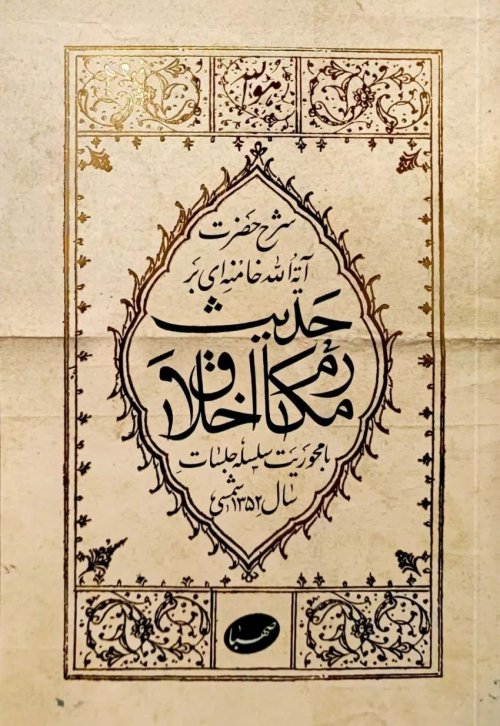 هو
شرح حضرت
آیة‌الله خامنه‌ای بر
حدیث
مکارم الاخلاق
با محوریت سلسله جلسات
سال ۱۳۵۲ شمسی
صهبا